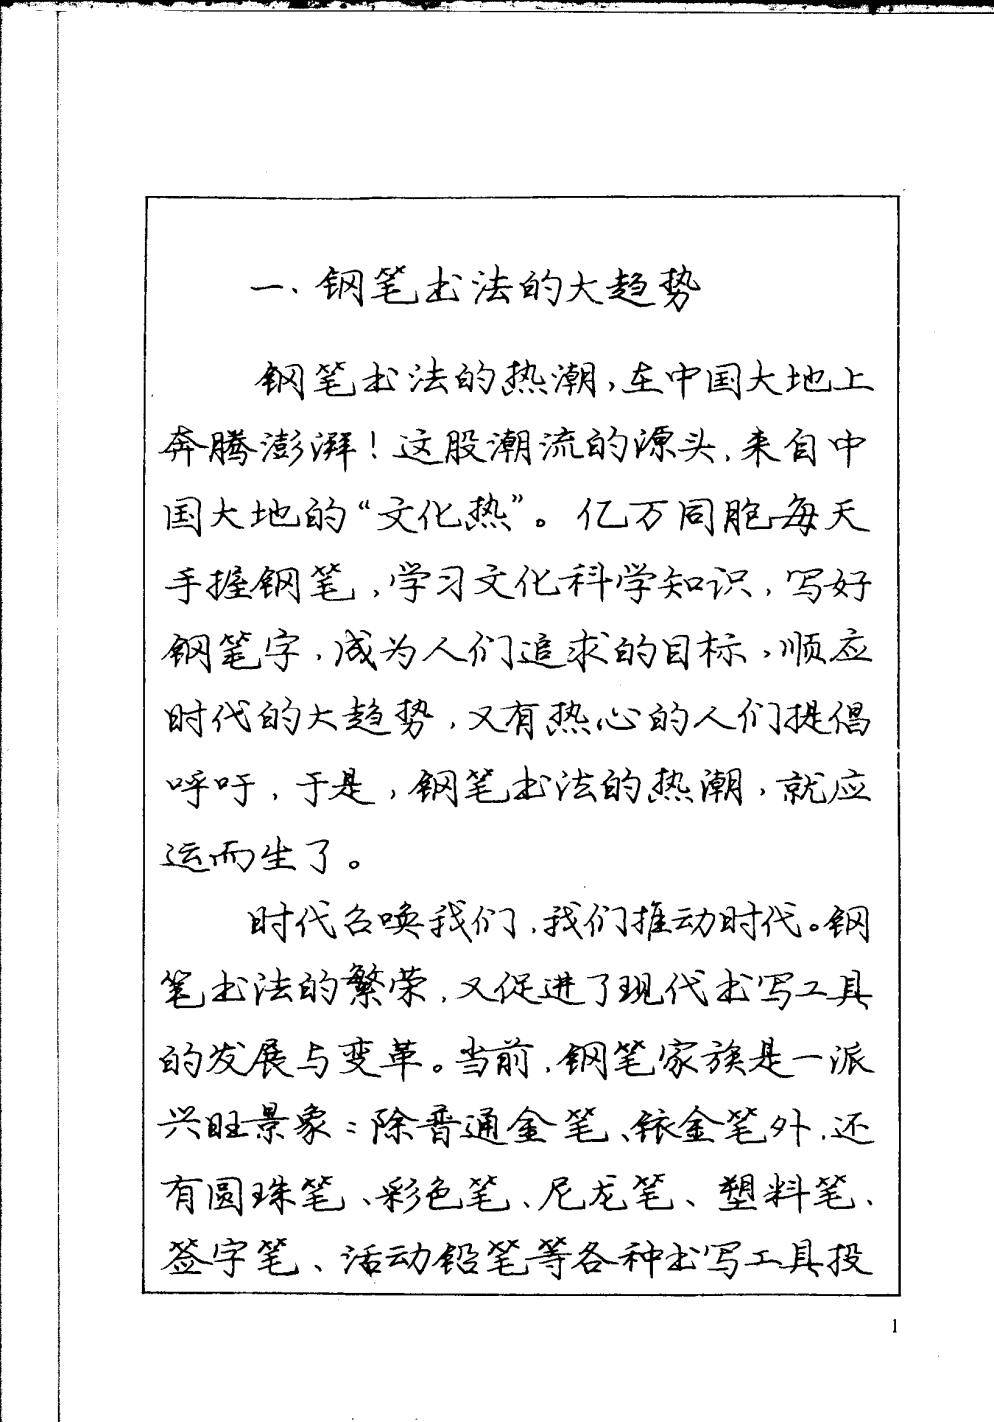 一、钢笔书法的大趋势
钢笔书法的热潮，在中国大地上
奔腾澎湃！这股潮流的源头，来自中
国大地的“文化热”。亿万同胞每天
手握钢笔，学习文化科学知识，写好
钢笔字，成为人们追求的目标，顺应
时代的大趋势，又有热心的人们提倡
呼吁，于是，钢笔书法的热潮，就应
运而生了。
时代召唤我们，我们推动时代。钢
笔书法的繁荣，又促进了现代书写工具
的发展与变革。当前，钢笔家族是一派
兴旺景象：除普通金笔、铱金笔外，还
有圆珠笔、彩色笔、尼龙笔、塑料笔、
签字笔、活动铅笔等各种书写工具投
1